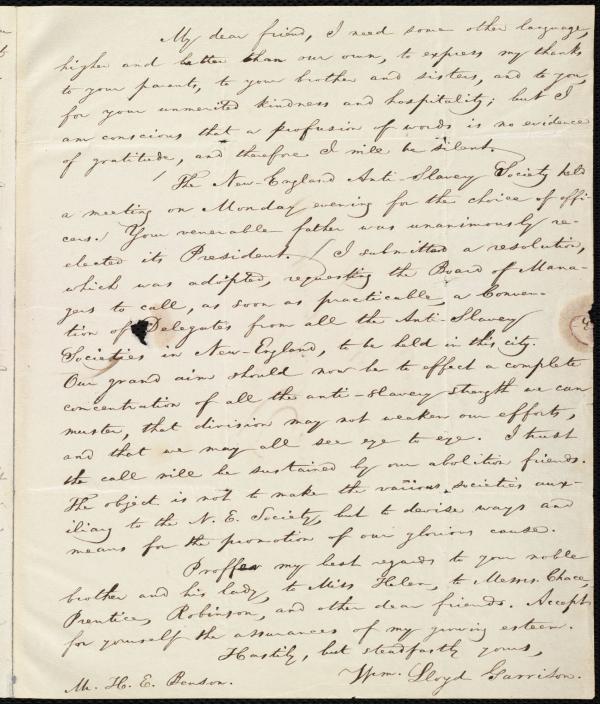 My dear friend, I need some other language,
higher and better than our own, to express my thanks
to your parents, to your brother and sisters, and to you,
for your unmerited kindness and hospitality; but I
am conscious that a profusion of words is no evidence
of gratitude, and therefore I will be silent.
The New-England Anti-Slavery Society held
a meeting on Monday evening for the choice of offi-
cers. Your venerable father was unanimously re-
elected its President. I submitted a resolution,
which was adopted, requesting the Board of Mana-
gers to call, as soon as practicable, a Conven-
tion of Delegates from all the Anti-Slavery
Societies in New-England, to be held in this city.
Our grand aim should now be to effect a complete
concentration of all the anti-slavery strength we can
muster, that division may not weaken our efforts,
and that we may all see eye to eye. I trust
the call will be sustained by our abolition friends.
The object is not to make the various societies aux-
iliary to the N. E. Society, but to devise ways and
means for the promotion of our glorious cause.
Proffer my best regards to your noble
brother and his lady, to Miss Helen, to Messrs. Chace,
Prentice, Robinson, and other dear friends. Accept
for yourself the assurances of my growing esteem.
Hastily, but steadfastly yours,
Wm. Lloyd Garrison.
Mr. H. E. Benson.